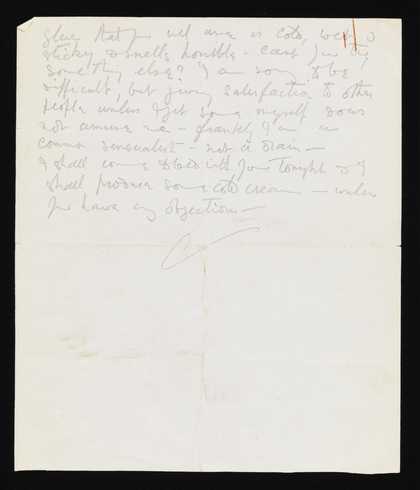 glue that you use are is cold, wet &
sticky & smells horrible – can't you try
something else? I am sorry to be
difficult, but giving satisfaction to other
people unless I get some myself does
not amuse me – frankly I am a
common sensualist – not a
I shall come to bed with you tonight & I
shall produce some cold cream – unless
you have any objections –